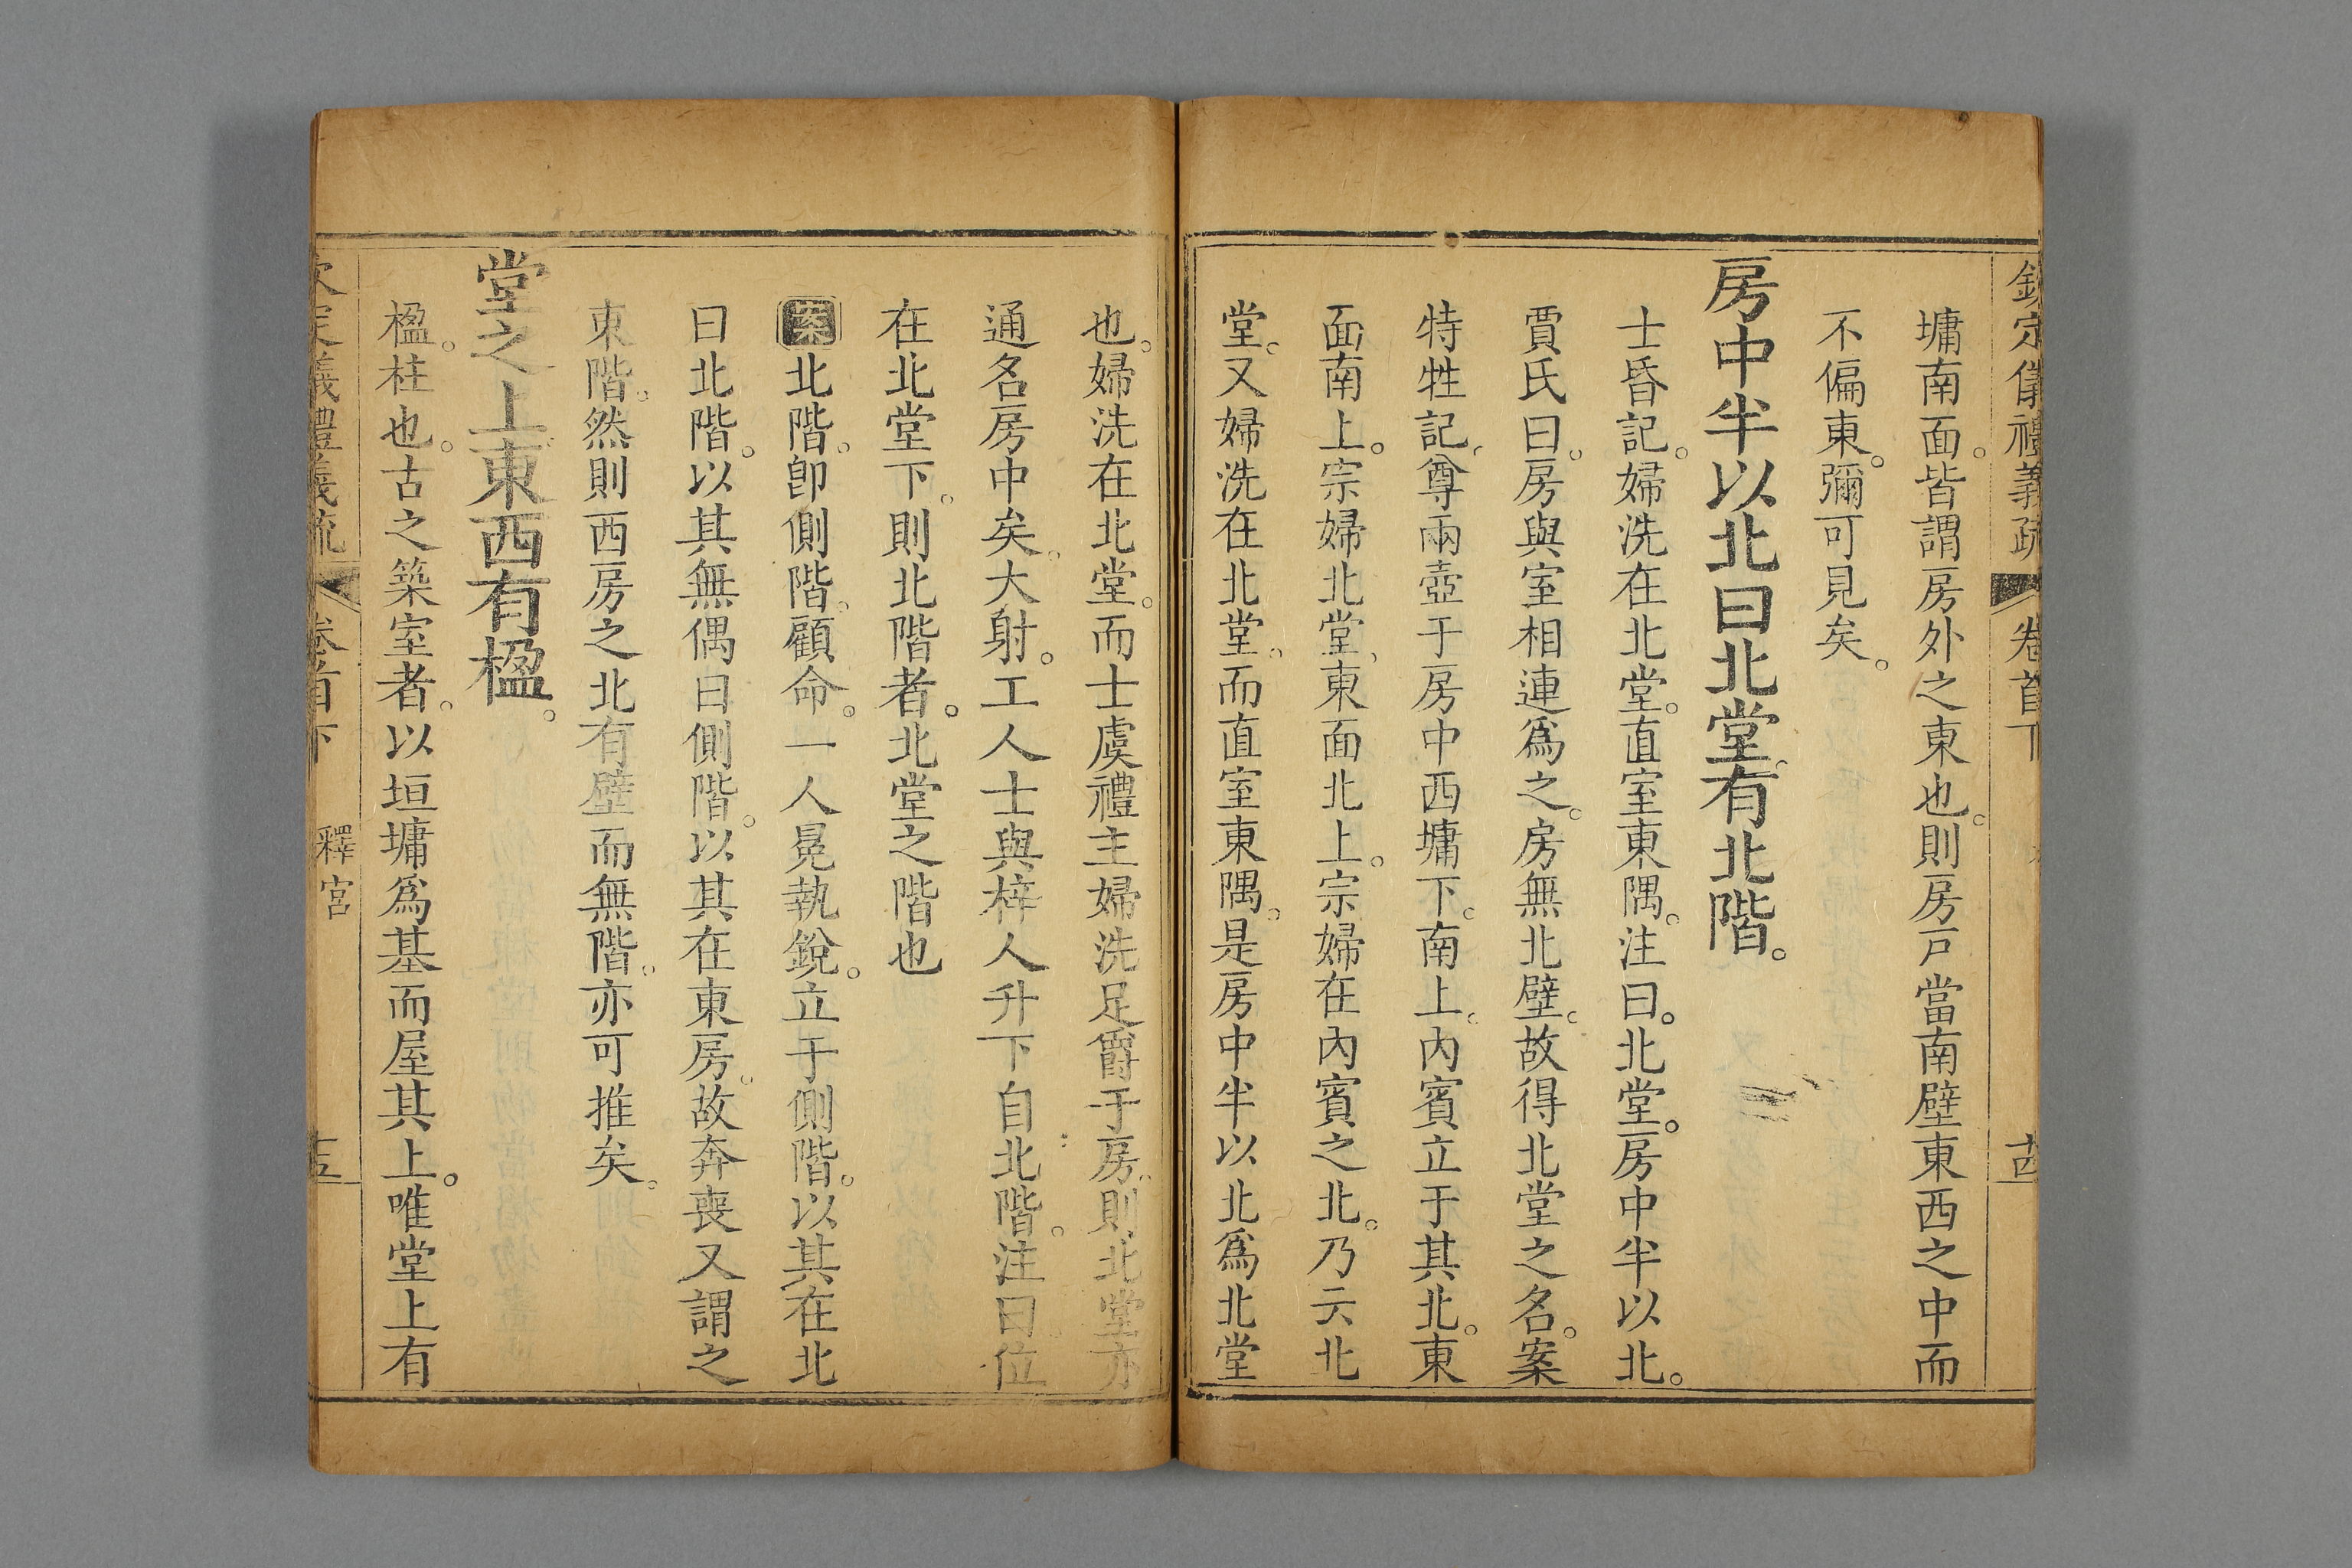 欽定儀禮義疏 卷首下 十四
墉南面。皆謂房外之東也。則房戸當南壁東西之中而
不偏東。彌可見矣。
房中半以北曰北堂。有北階。
士昏記。婦洗在北堂。直室東隅。注曰。北堂。房中半以北。
賈氏曰。房與室相連爲之。房無北壁。故得北堂之名。案
特牲記。尊兩壺于房中西墉下。南上。内賓立于其北。東
面南上。宗婦北堂。東面北上。宗婦在內賓之北。乃云北
堂。又婦洗在北堂。而直室東隅。是房中半以北爲北堂
也。婦洗在北堂。而士虞禮主婦洗足爵于房。則北堂亦
通名房中矣。大射。工人士與梓人升下自北階。注曰位
在北堂下。則北階者。北堂之階也
案北階。卽側階。顧命。一人冕執銳。立于側階。以其在北
曰北階。以其無偶曰側階。以其在東房。故奔喪又謂之
東階。然則西房之北有壁而無階。亦可推矣。
堂之上。東西有楹。
楹。柱也。古之築室者。以垣墉爲基而屋其上。唯堂上有
欽定義禮義疏 卷首下 釋宮 十五